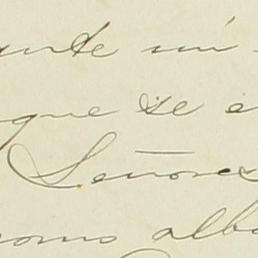 ante mi
que se e
Señores
como alba